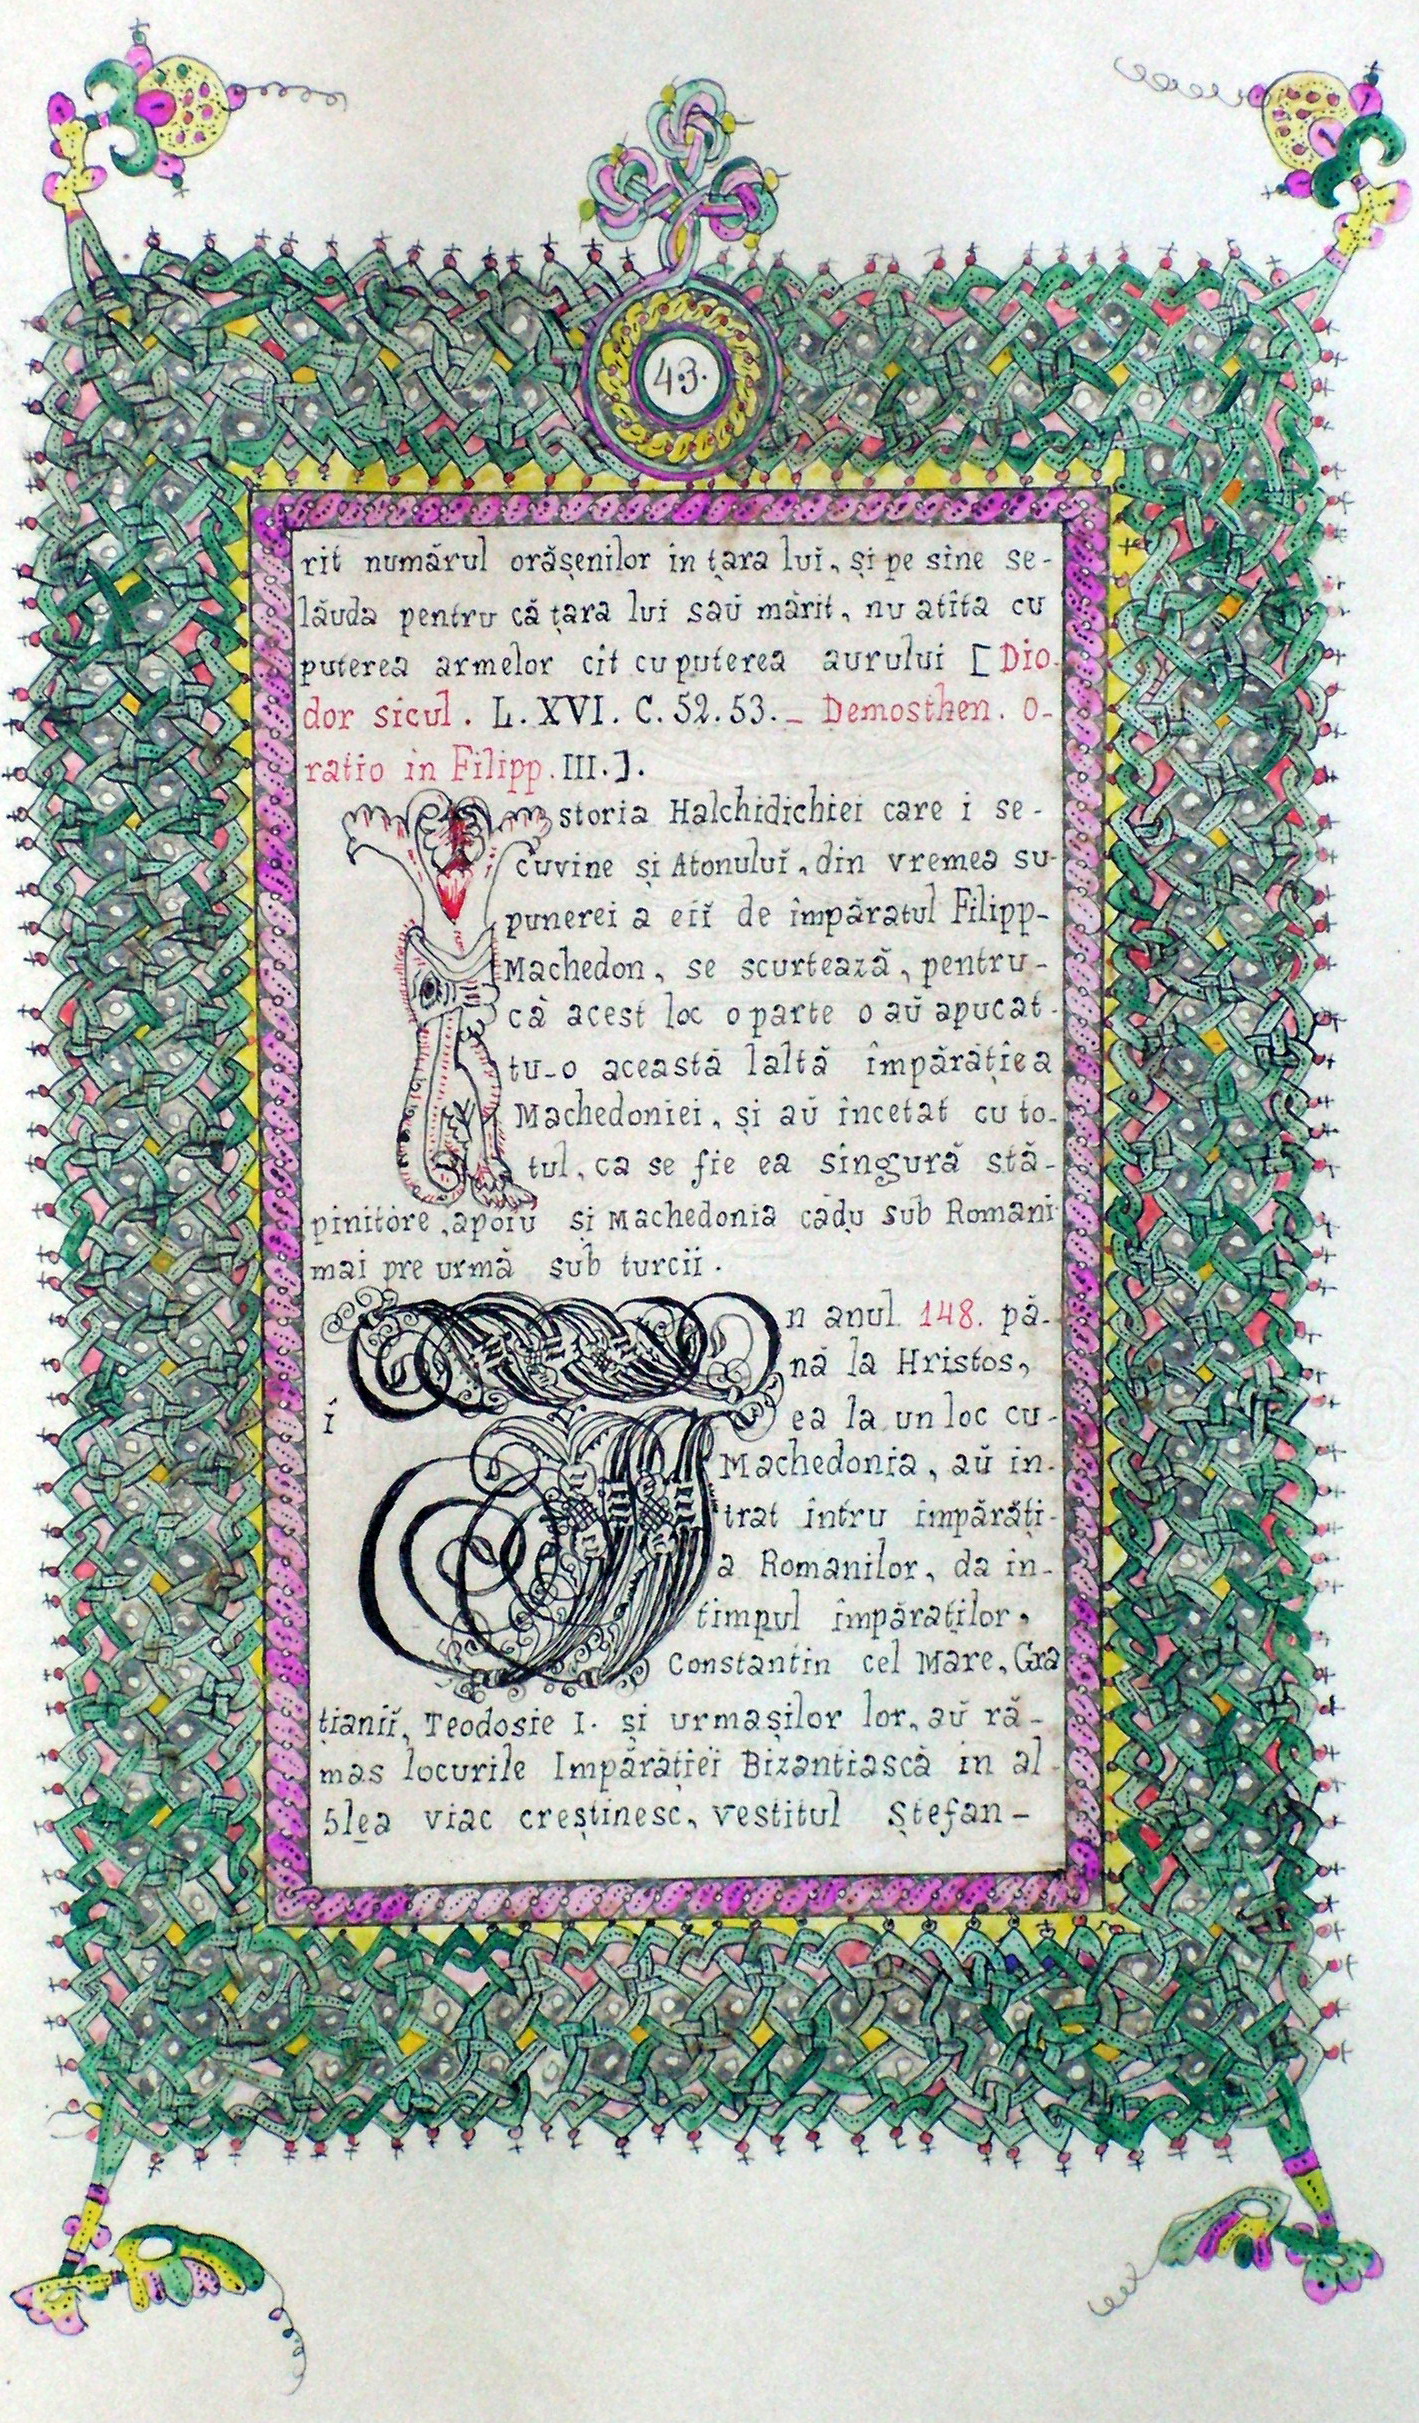 43.
rit numărul orășenilor in țara luĭ, și pe sine se-
lăuda pentru că țara lui saŭ mărit, nu atîta cu
puterea armelor cit cu puterea aurului [Dio-
dor sicul. L. XVI. C. 52. 53._ Demosthen. O-
ratio in Filipp. III.].
Istoria Halchidichiei care i se-
cuvine și Atonuluĭ, din vremea su-
punerei a eiĭ de împăratul Filipp-
Machedon, se scurtează, pentru-
că acest loc o parte o aŭ apucat-
tu-o această laltă împărățiea
Machedoniei, și aŭ încetat cu to-
tul, ca se fie ea singură stă-
pinitore, apoiu și Machedonia cădu sub Romani
mai pre urmă sub turcii.
În anul 148. pă-
nă la Hristos,
î ea la un loc cu-
Machedonia, aŭ in-
trat întru impărăți-
a Romanilor, da in-
timpul împăraților,
Constantin cel Mare, Gra
țianiĭ, Teodosie I. și urmașilor lor, aŭ ră-
mas locurile Impărăției Bizantiască in al-
5lea viac creștinesc, vestitul Ștefan-